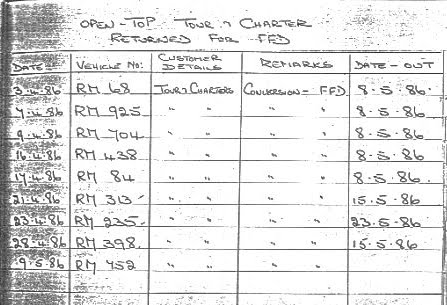 OPEN-TOP TOUR & CHARTER
RETURNED FOR FFD
DATE VEHICLE NO: CUSTOMER DETAILS REMARKS DATE-OUT
3.4.86 RM 68 TOUR & CHARTERS CONVERSION - FFD 8.5.86.
7.4.86 RM 925 " " " " 8.5.86
9.4.86 RM 704 " " " " 8.5.86
16.4.86 RM 438 " " " " 8.5.86
17.4.86 RM 84 " " " " 8.5.86
21.4.86 RM 313 " " " " 15.5.86
23.4.86 RM 235. " " " " 23.5.86
28.4.86 RM 398. " " " " 15.5.86
9.5.86 RM 752 " " " "